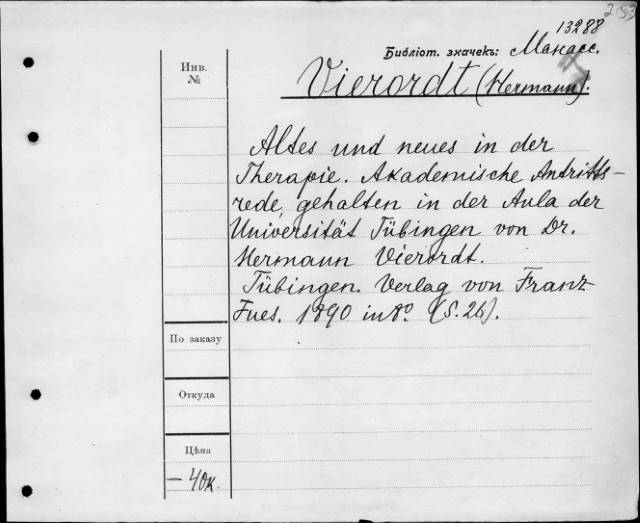 253
13288
Библіот. значекъ: Манасс.
Инв.
№
Vierordt (Hermann).
Altes und neues in der
Therapie. Akademische Antritts-
rede, gehalten in der Aula der
Universität Tübingen von Dr.
Hermann Vierordt.
Tübingen. Verlag von Franz
Fues. 1890 in 8° (S. 26).
По заказу
Откуда
Цѣна
— 40к.